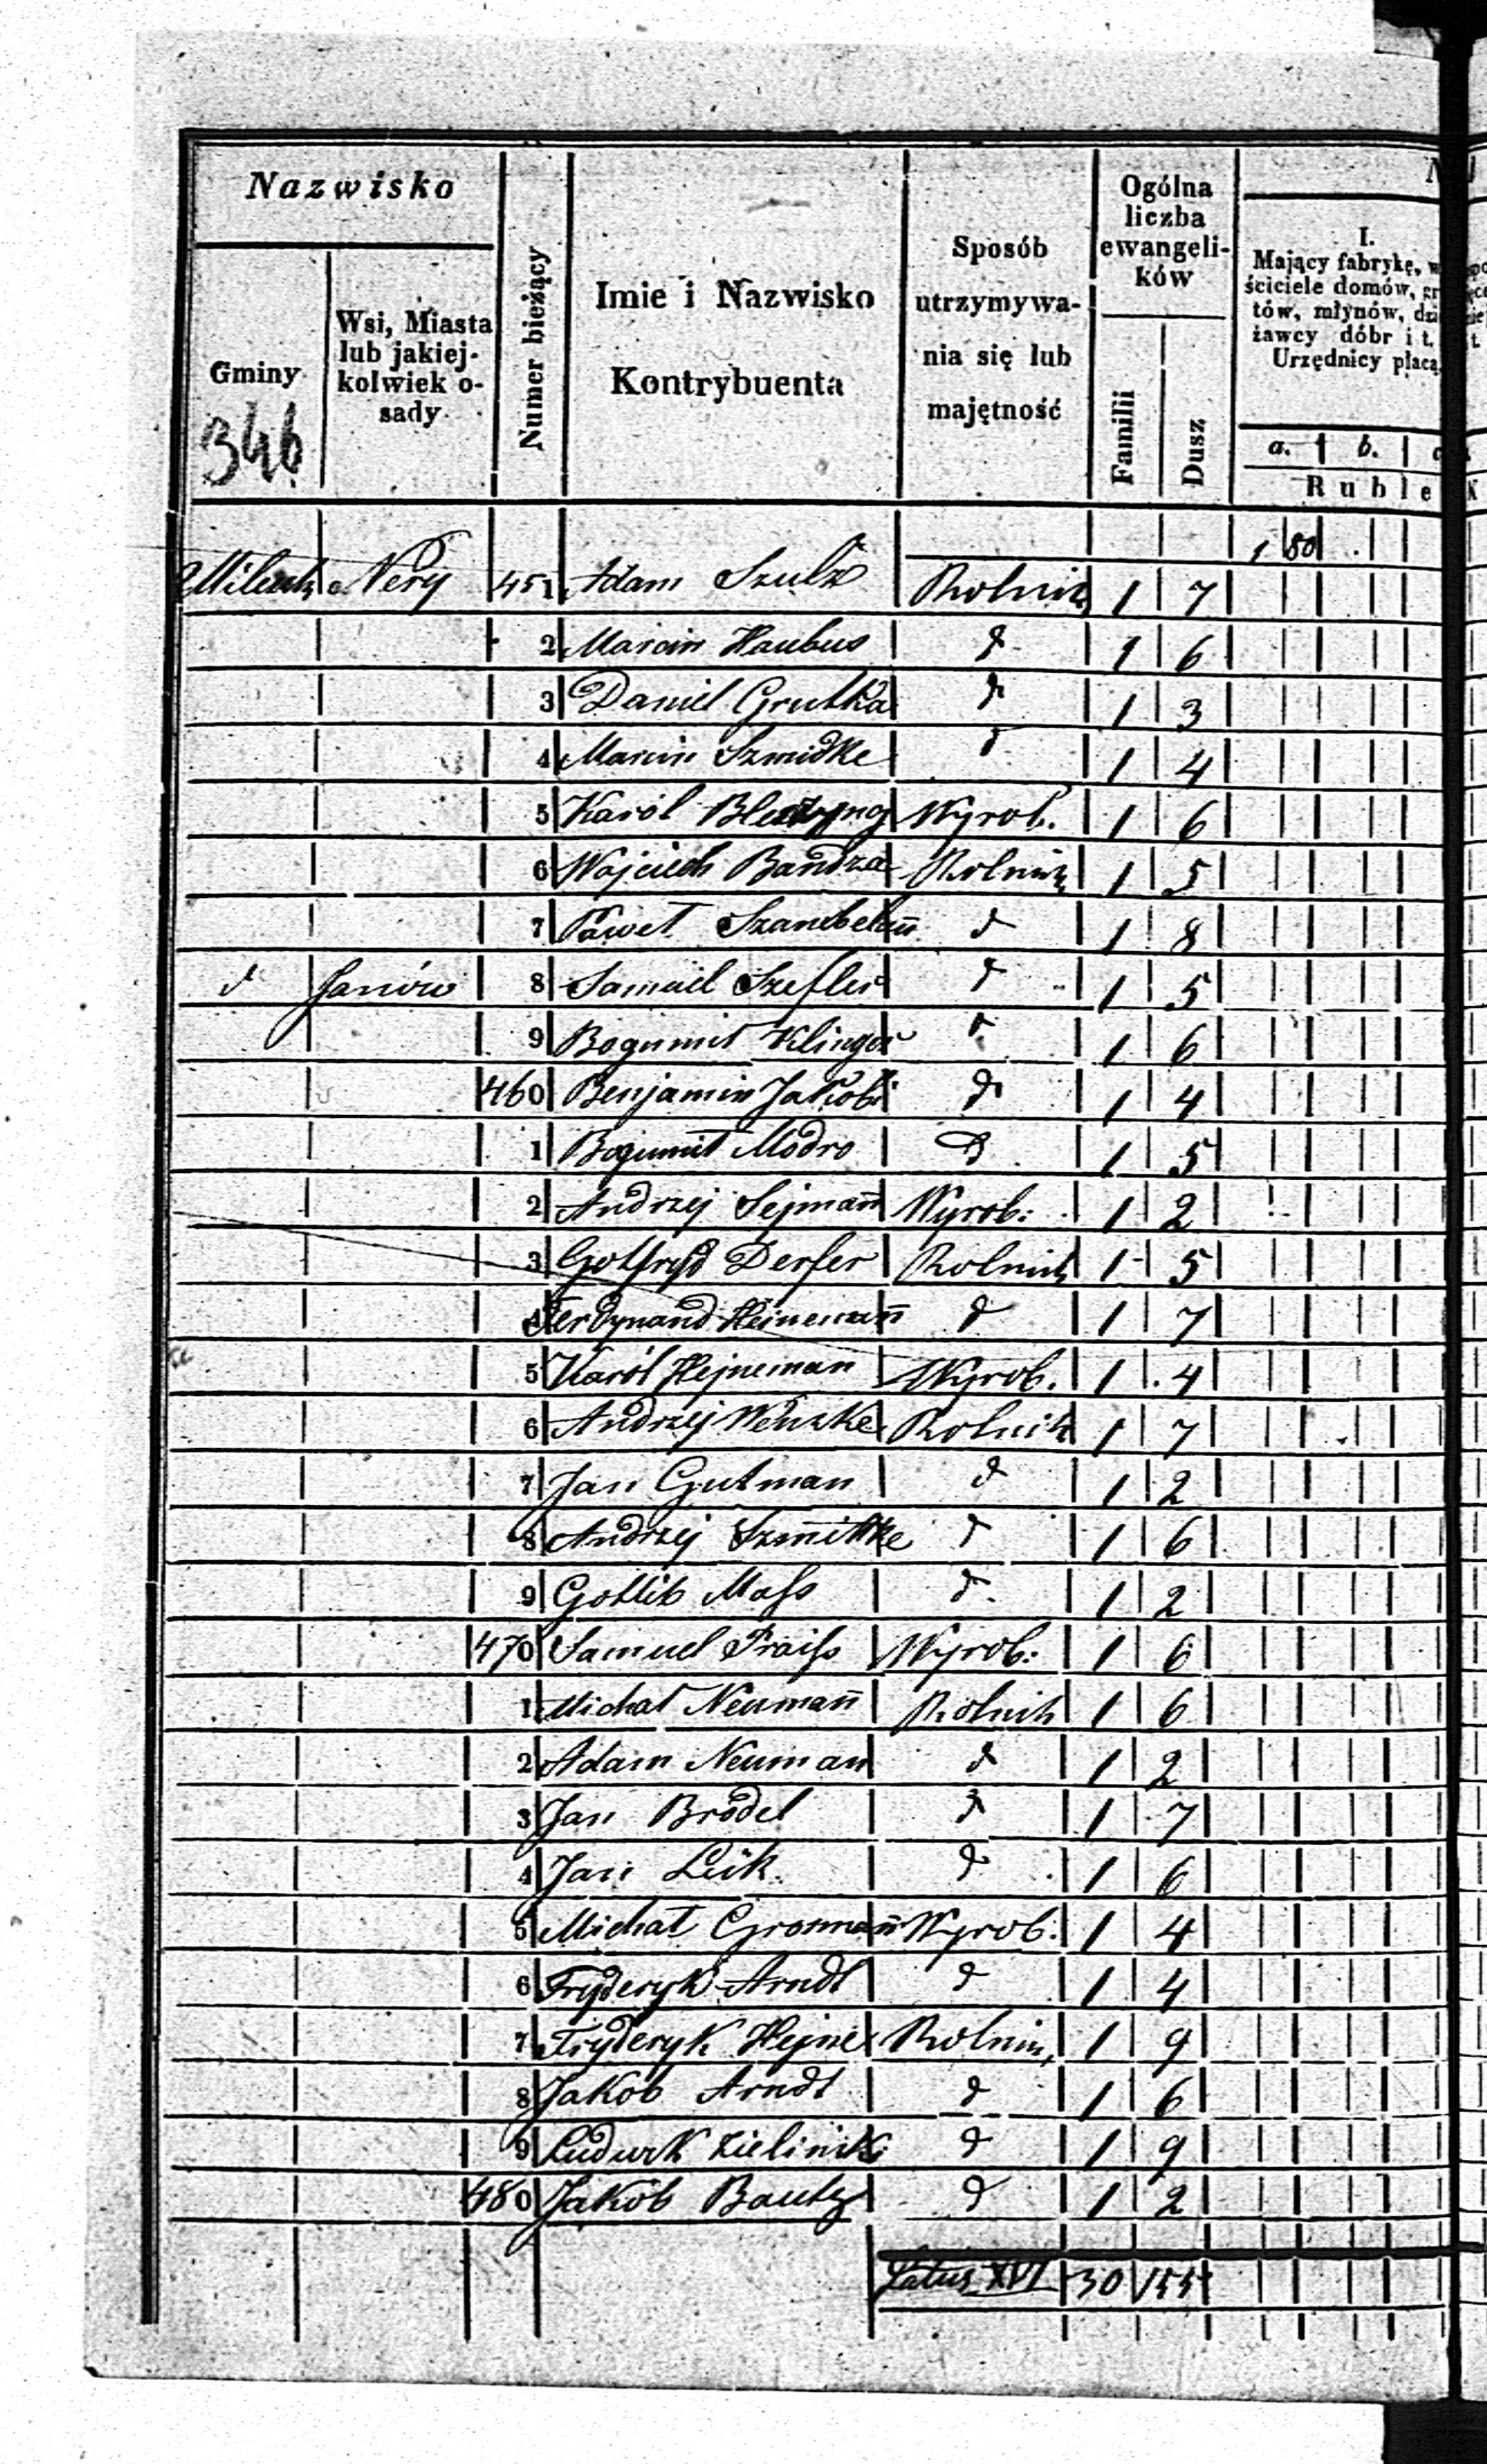 Nazwisko
Gminy
346
Wsi, Miasta
lub jakiej-
kolwiek o-
sady
Numer bieżący
Imie i Nazwisko
Kontrybuenta
Sposób
utrzymywa-
nia się lub
majętność
Ogólna
liczba
ewangeli-
ków
Familii
Dusz
I.
Mający fabrykę,
ściciele domów,
tów, młynów,
żawcy dóbr i t.
Urzędnicy płacą
a. b.
Ruble
1 80
Nery 451 Adam Szulz Rolnik 1 7
2 Marcin Haubus d 1 6
3 Daniel Grutka d 1 3
4 Marcin Szmidke d 1 4
5 Karól Wyrob. 1 6
6 Wojciech Bandza Rolnik 1 5
7 Paweł Szambelan̄ d 1 8
d Janów 8 Samuel Szefler d 1 5
9 Bogumił Klinger d 1 6
460 Benjamin Jakobi d 1 4
1 Bogumił Modro d 1 5
2 Andrzej Sejman̄ Wyrob: 1 2
3 Gotfryd Derfer Rolnik 1 5
4 Ferdynand Heineman̄ d 1 7
5 Karól Hejneman Wyrob. 1 4
6 Andrzej Wenzke Rolnik 1 7
7 Jan Gutman d 1 2
8 Andrzej Szmitke d 1 6
9 Gottlib Mass d 1 2
470 Samuel Fraiss Wyrob: 1 6
1 Michał Neuman̄ Rolnik 1 6
2 Adam Neuman d 1 2
3 Jan Brödel d 1 7
4 Jan Leik d 1 6
5 Michał Grosman̄ Wyrob. 1 4
6 Fryderyk Arndt d 1 4
7 Fryderyk Hejne Rolnik 1 9
8 Jakób Arndt d 1 6
9 Ludwik Zielinski d 1 9
480 Jakób Bautz d 1 2
Latus XVI 30 155